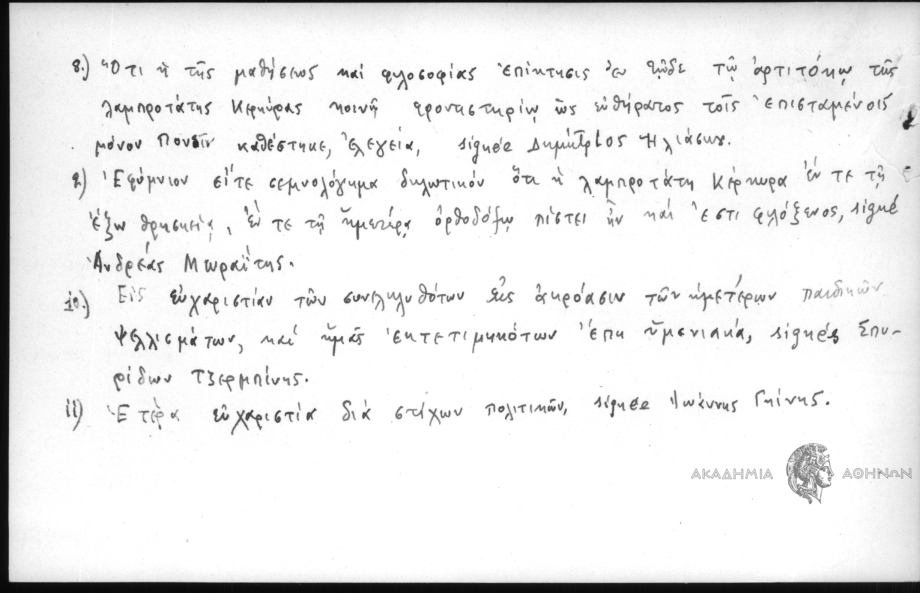 8.) Ὅτι ἡ τῆς μαθήσεως καὶ φιλοσοφίας ἐπίκτησις ἐν τῷδε τῷ ἀρτιτόκῳ τῆς
λαμπροτάτης Κερκύρας κοινῇ φροντιστηρίῳ ὡς εὐθήρατος τοῖς ἐπισταμένοις
μόνον πονεῖν καθέστηκε, ἐλεγεία, signée Δημήτριος Ἠλιάσκου.
9) Ἐφύμνιον εἴτε σεμνολόγημα δηλωτικόν ὅτι ἡ λαμπροτάτη Κέρκυρα ἔν τε τῇ
ἔξω θρησκείᾳ, ἔν τε τῇ ἡμετέρᾳ ὀρθοδόξῳ πίστει ἦν καί ἐστι φιλόξενος, signé
Ἀνδρέας Μωραΐτης.
10.) Εἰς εὐχαριστίαν τῶν συνεληλυθότων εἰς ἀκρόασιν τῶν ἡμετέρων παιδικῶν
ψελλισμάτων, καί ἡμᾶς ἐκτετιμηκότων ἔπη ὑμενιακά, signés Σπυ-
ρίδων Τζερμπίνης.
11) Ἑτέρα εὐχαριστία διά στίχων πολιτικῶν, signée Ἰωάννης Γκίνης.
ΑΚΑΔΗΜΙΑ ΑΘΗΝΩΝ